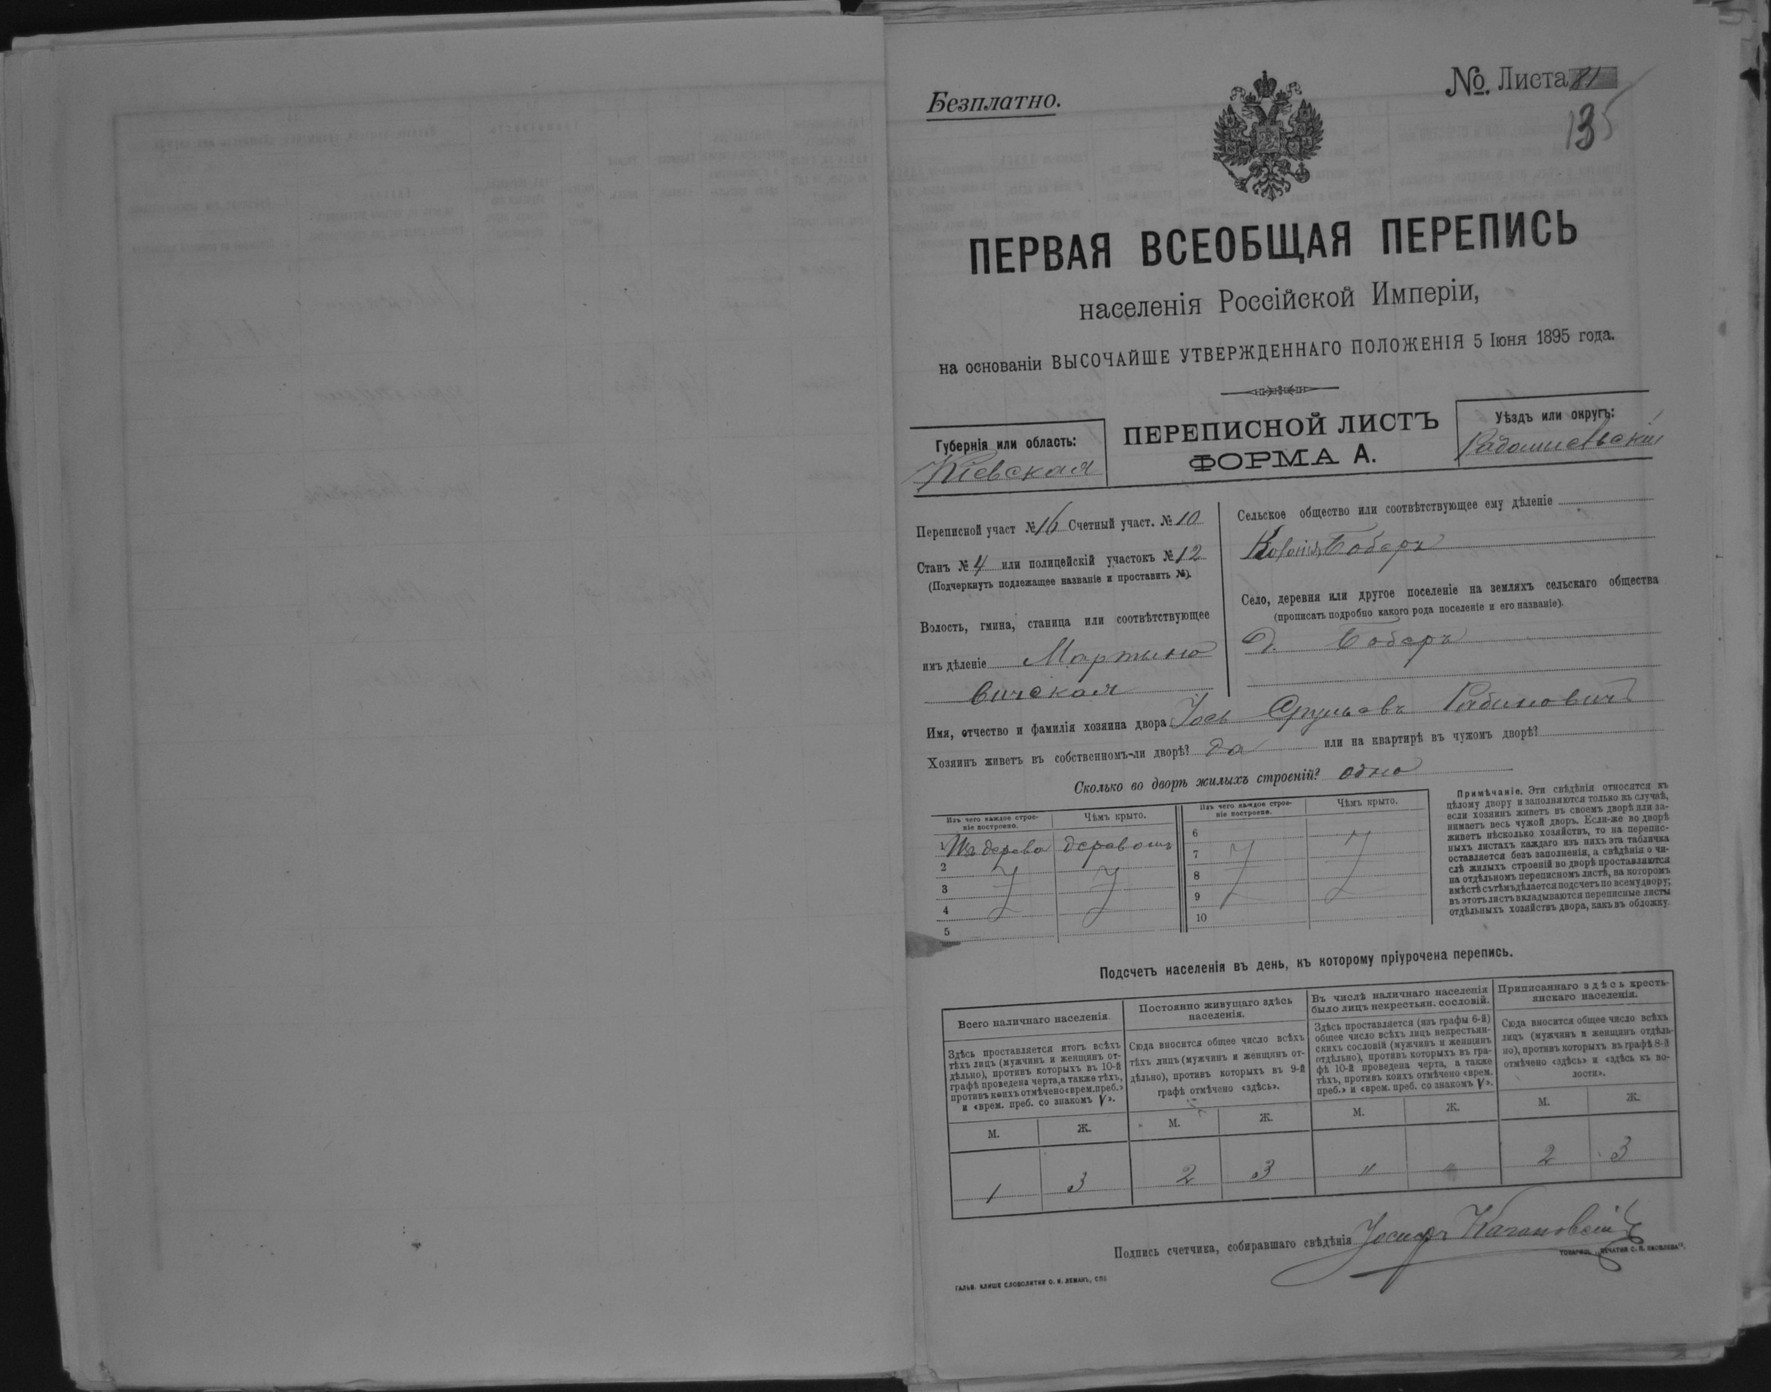 Безплатно.
№ Листа 81
135
ПЕРВАЯ ВСЕОБЩАЯ ПЕРЕПИСЬ
населенія Россійской Имперіи,
на основаніи ВЫСОЧАЙШЕ УТВЕРЖДЕННАГО ПОЛОЖЕНІЯ 5 Іюня 1895 года.
Губернія или область:
Кіевская
ПЕРЕПИСНОЙ ЛИСТЪ
ФОРМА А.
Уѣздъ или округъ:
Радомысльскій
Переписной участ №16 Счетный участ. №10
Станъ № 4 или полицейскій участокъ № 12
(Подчеркнуть подлежащее названіе и проставить №).
Волость, гмина, станица или соотвѣтствующее
имъ дѣленіе Мартыно
вичская
Сельское общество или соотвѣтствующее ему дѣленіе
Колонія Боберъ
Село, деревня или другое поселеніе на земляхъ сельскаго общества
(прописать подробно какого рода поселеніе и его названіе).
д. Боберъ
Имя, отчество и фамилія хозяина двора Іось Срульевъ Рабиновичъ
Хозяинъ живетъ въ собственномъ-ли дворѣ? да или на квартирѣ въ чужомъ дворѣ?
Сколько во дворѣ жилыхъ строеній? одно
Изъ чего каждое строе-
ніе построено.
Чѣмъ крыто.
1 Изъ дерева деревомъ
2
3
4
5
Изъ чего каждое строе-
ніе построено.
Чѣмъ крыто.
6
7
8
9
10
Примѣчаніе. Эти свѣдѣнія относятся къ
цѣлому двору и заполняются только въ случаѣ,
если хозяинъ живетъ въ своемъ дворѣ или за-
нимаетъ весь чужой дворъ. Если-же во дворѣ
живетъ нѣсколько хозяйствъ, то на перепис-
ныхъ листахъ каждаго изъ нихъ эта табличка
оставляется безъ заполненія, а свѣдѣнія о чи-
слѣ жилыхъ строеній во дворѣ проставляются
на отдѣльномъ переписномъ листѣ, на которомъ
вмѣстѣ съ тѣмъ дѣлается подсчетъ по всему двору;
въ этотъ листъ вкладываются переписные листы
отдѣльныхъ хозяйствъ двора, какъ въ обложку.
Подсчетъ населенія въ день, къ которому пріурочена перепись.
Всего наличнаго населенія.
Здѣсь проставляется итогъ всѣхъ
тѣхъ лицъ (мужчинъ и женщинъ от-
дѣльно), противъ которыхъ въ 10-й
графѣ проведена черта, а также тѣхъ,
противъ коихъ отмѣчено «врем. преб.»
и «врем. преб. со знакомъ V».
М. Ж.
1 3
Постоянно живущаго здѣсь
населенія.
Сюда вносится общее число всѣхъ
тѣхъ лицъ (мужчинъ и женщинъ от-
дѣльно), противъ которыхъ въ 9-й
графѣ отмѣчено «здѣсь».
М. Ж.
2 3
Въ числѣ наличнаго населенія
было лицъ некрестьян. сословій.
Здѣсь проставляется (изъ графы 6-й)
общее число всѣхъ лицъ некрестьян-
скихъ сословій (мужчинъ и женщинъ
отдѣльно), противъ которыхъ въ гра-
фѣ 10-й проведена черта, а также
тѣхъ, противъ коихъ отмѣчено «врем.
преб.» и «врем. преб. со знакомъ V».
М. Ж.
" "
Приписаннаго здѣсь кресть-
янскаго населенія.
Сюда вносится общее число всѣхъ
лицъ (мужчинъ и женщинъ отдѣль-
но), противъ которыхъ въ графѣ 8-й
отмѣчено «здѣсь» и «здѣсь въ во-
лости».
М. Ж.
2 3
Подпись счетчика, собиравшаго свѣдѣнія Іосифъ Кагановскій
ГАЛЬВ. КЛИШЕ СЛОВОЛИТНИ О. И. ЛЕМАНЪ, СПБ.
ТОВАРИЩ. „ПЕЧАТНЯ С. П. ЯКОВЛЕВА".